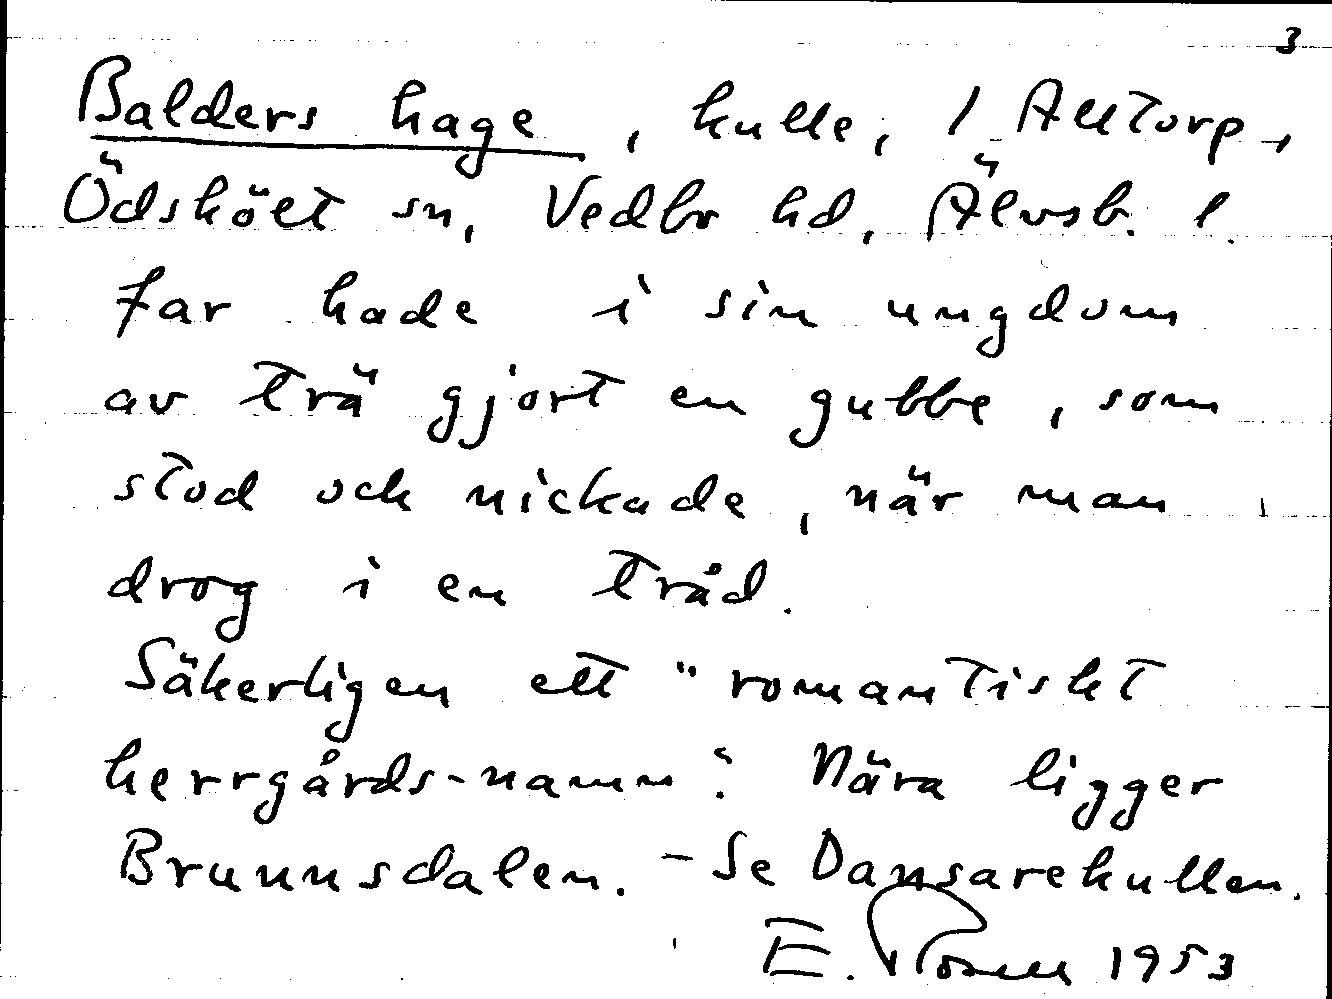 3
Balders hage, kulle, 1 Alltorp,
Ödsköit sn, Vedbo hd, Älvsb. l.
Far hade i sin ungdom
av trä gjort en gubbe, som
stod och nickade, när man
drog i en tråd.
Säkerligen ett "romantiskt
herrgårds-namn". Nära ligger
Brunnsdalen. - Se Dansarekullen.
E. Rosell 1953